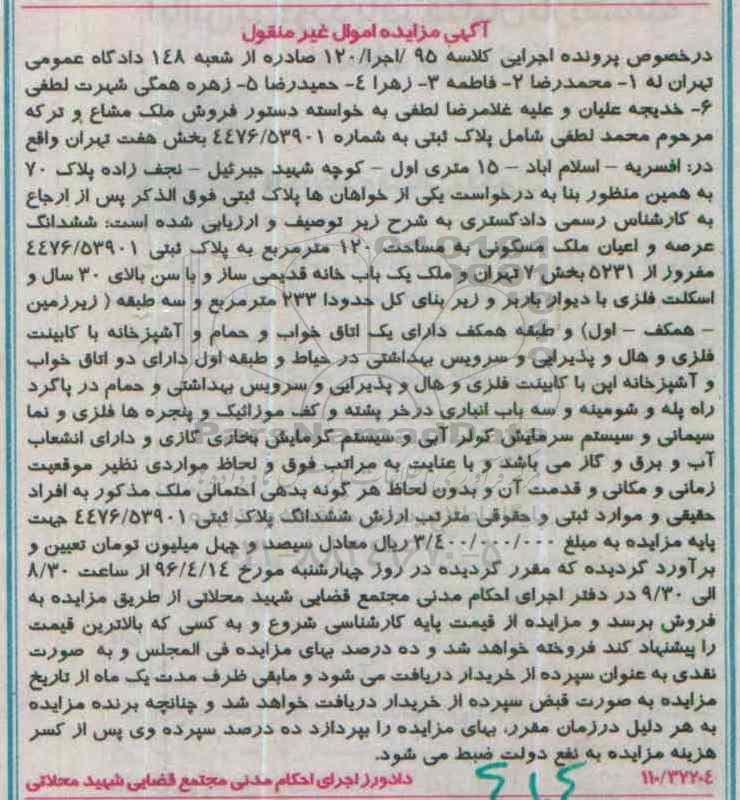 آگهی مزایده اموال غیر منقول
درخصوص پرونده اجرایی کلاسه ۹۵ /اجرا/۱۲۰ صادره از شعبه ۱۴۸ دادگاه عمومی
تهران له ۱- محمدرضا ۲- فاطمه ۳- زهرا ٤- حمیدرضا ۵- زهره همگی شهرت لطفی
۶- خدیجه علیان و علیه غلامرضا لطفی به خواسته دستور فروش ملک مشاع و ترکه
مرحوم محمد لطفی شامل پلاک ثبتی به شماره ٤٤٧۶/۵۳۹۰۱ بخش هفت تهران واقع
در: افسریه - اسلام اباد - ۱۵ متری اول - کوچه شهید جبرئیل - نجف زاده پلاک ۷۰
به همین منظور بنا به درخواست یکی از خواهان ها پلاک ثبتی فوق الذکر پس از ارجاع
به کارشناس رسمی دادگستری به شرح زیر توصیف و ارزیابی شده است: ششدانگ
عرصه و اعیان ملک مسکونی به مساحت ۱۲۰ مترمربع به پلاک ثبتی ٤٤٧۶/۵۳۹۰۱
مفروز از ۵۲۳۱ بخش ۷ تهران و ملک یک باب خانه قدیمی ساز و با سن بالای ۳۰ سال و
اسکلت فلزی با دیوار باربر و زیر بنای کل حدودا ۲۳۳ مترمربع و سه طبقه ( زیرزمین
- همکف - اول) و طبقه همکف دارای یک اتاق خواب و حمام و آشپزخانه با کابینت
فلزی و هال و پذیرایی و سرویس بهداشتی در حیاط و طبقه اول دارای دو اتاق خواب
و آشپزخانه اپن با کابینت فلزی و هال و پذیرایی و سرویس بهداشتی و حمام در پاگرد
راه پله و شومینه و سه باب انباری درخر پشته و کف موزائیک و پنجره ها فلزی و نما
سیمانی و سیستم سرمایش کولر آبی و سیستم گرمایش بخاری گازی و دارای انشعاب
آب و برق و گاز می باشد و با عنایت به مراتب فوق و لحاظ مواردی نظیر موقعیت
زمانی و مکانی و قدمت آن و بدون لحاظ هر گونه بدهی احتمالی ملک مذکور به افراد
حقیقی و موارد ثبتی و حقوقی مترتب ارزش ششدانگ پلاک ثبتی ٤٤٧۶/۵۳۹۰۱ جهت
پایه مزایده به مبلغ ۳/٤۰۰/۰۰۰/۰۰۰ ریال معادل سیصد و چهل میلیون تومان تعیین و
برآورد گردیده که مقرر گردیده در روز چهارشنبه مورخ ۹۶/٤/۱٤ از ساعت ۸/۳۰
الی ۹/۳۰ در دفتر اجرای احکام مدنی مجتمع قضایی شهید محلاتی از طریق مزایده به
فروش برسد و مزایده از قیمت پایه کارشناسی شروع و به کسی که بالاترین قیمت
را پیشنهاد کند فروخته خواهد شد و ده درصد بهای مزایده فی المجلس و به صورت
نقدی به عنوان سپرده از خریدار دریافت می شود و مابقی ظرف مدت یک ماه از تاریخ
مزایده به صورت قبض سپرده از خریدار دریافت خواهد شد و چنانچه برنده مزایده
به هر دلیل درزمان مقرر، بهای مزایده را بپردازد ده درصد سپرده وی پس از کسر
هزینه مزایده به نفع دولت ضبط می شود.
۱۱۰/۳۷۲۰٤ دادورز اجرای احکام مدنی مجتمع قضایی شهید محلاتی
ParsNamadData